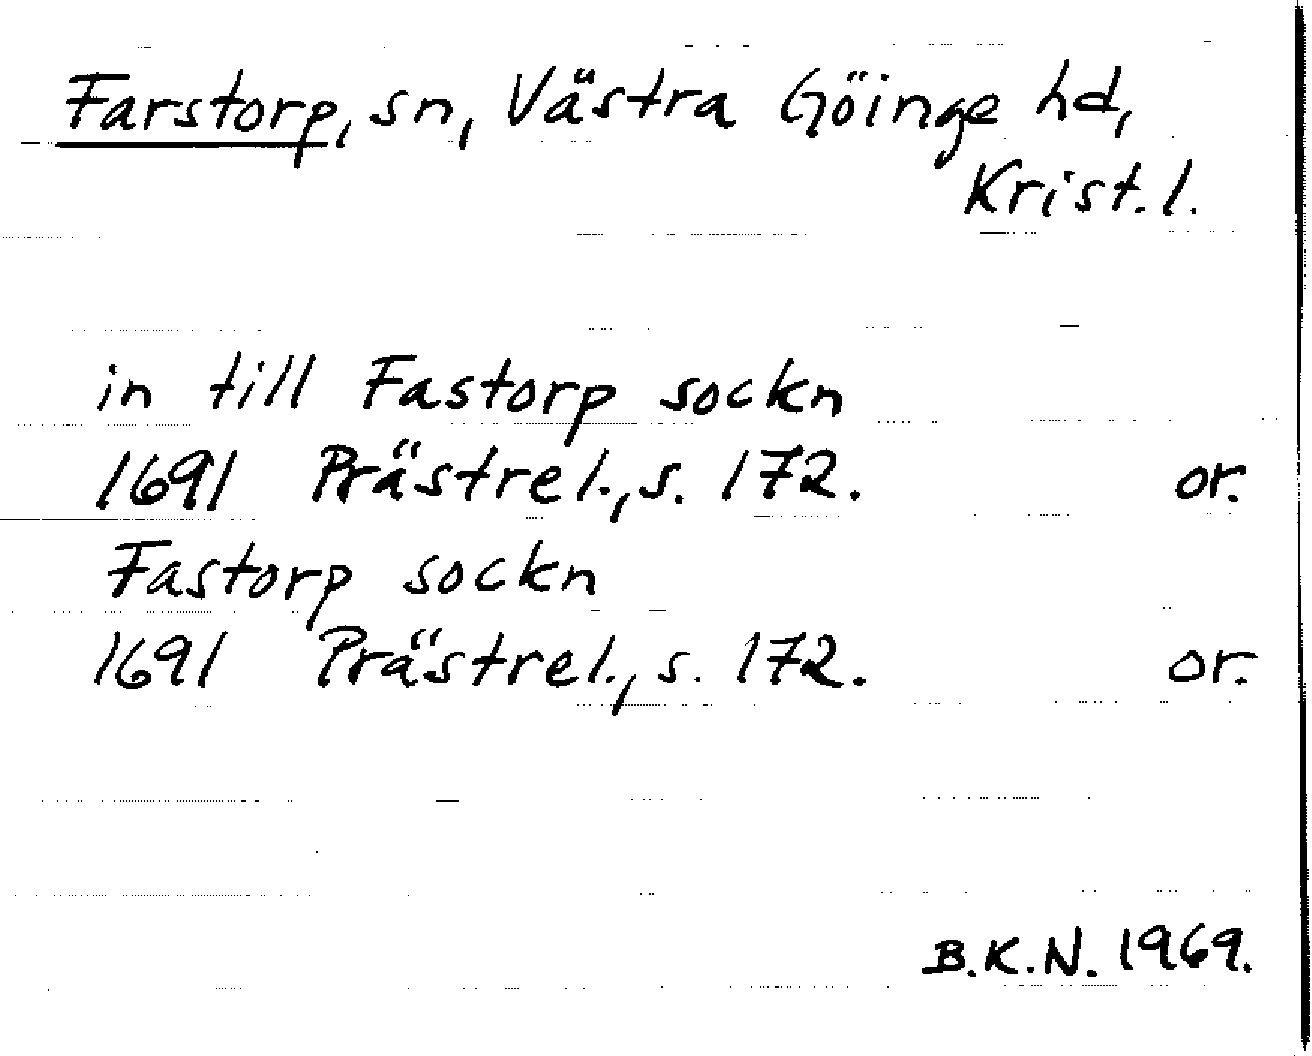 Farstorp, sn, Västra Göinge hd,
Krist. l.
in till Fastorp sockn
1691 Prästrel., s. 172. or.
Fastorp sockn
1691 Prästrel., s. 172. or.
B.K.N. 1969.